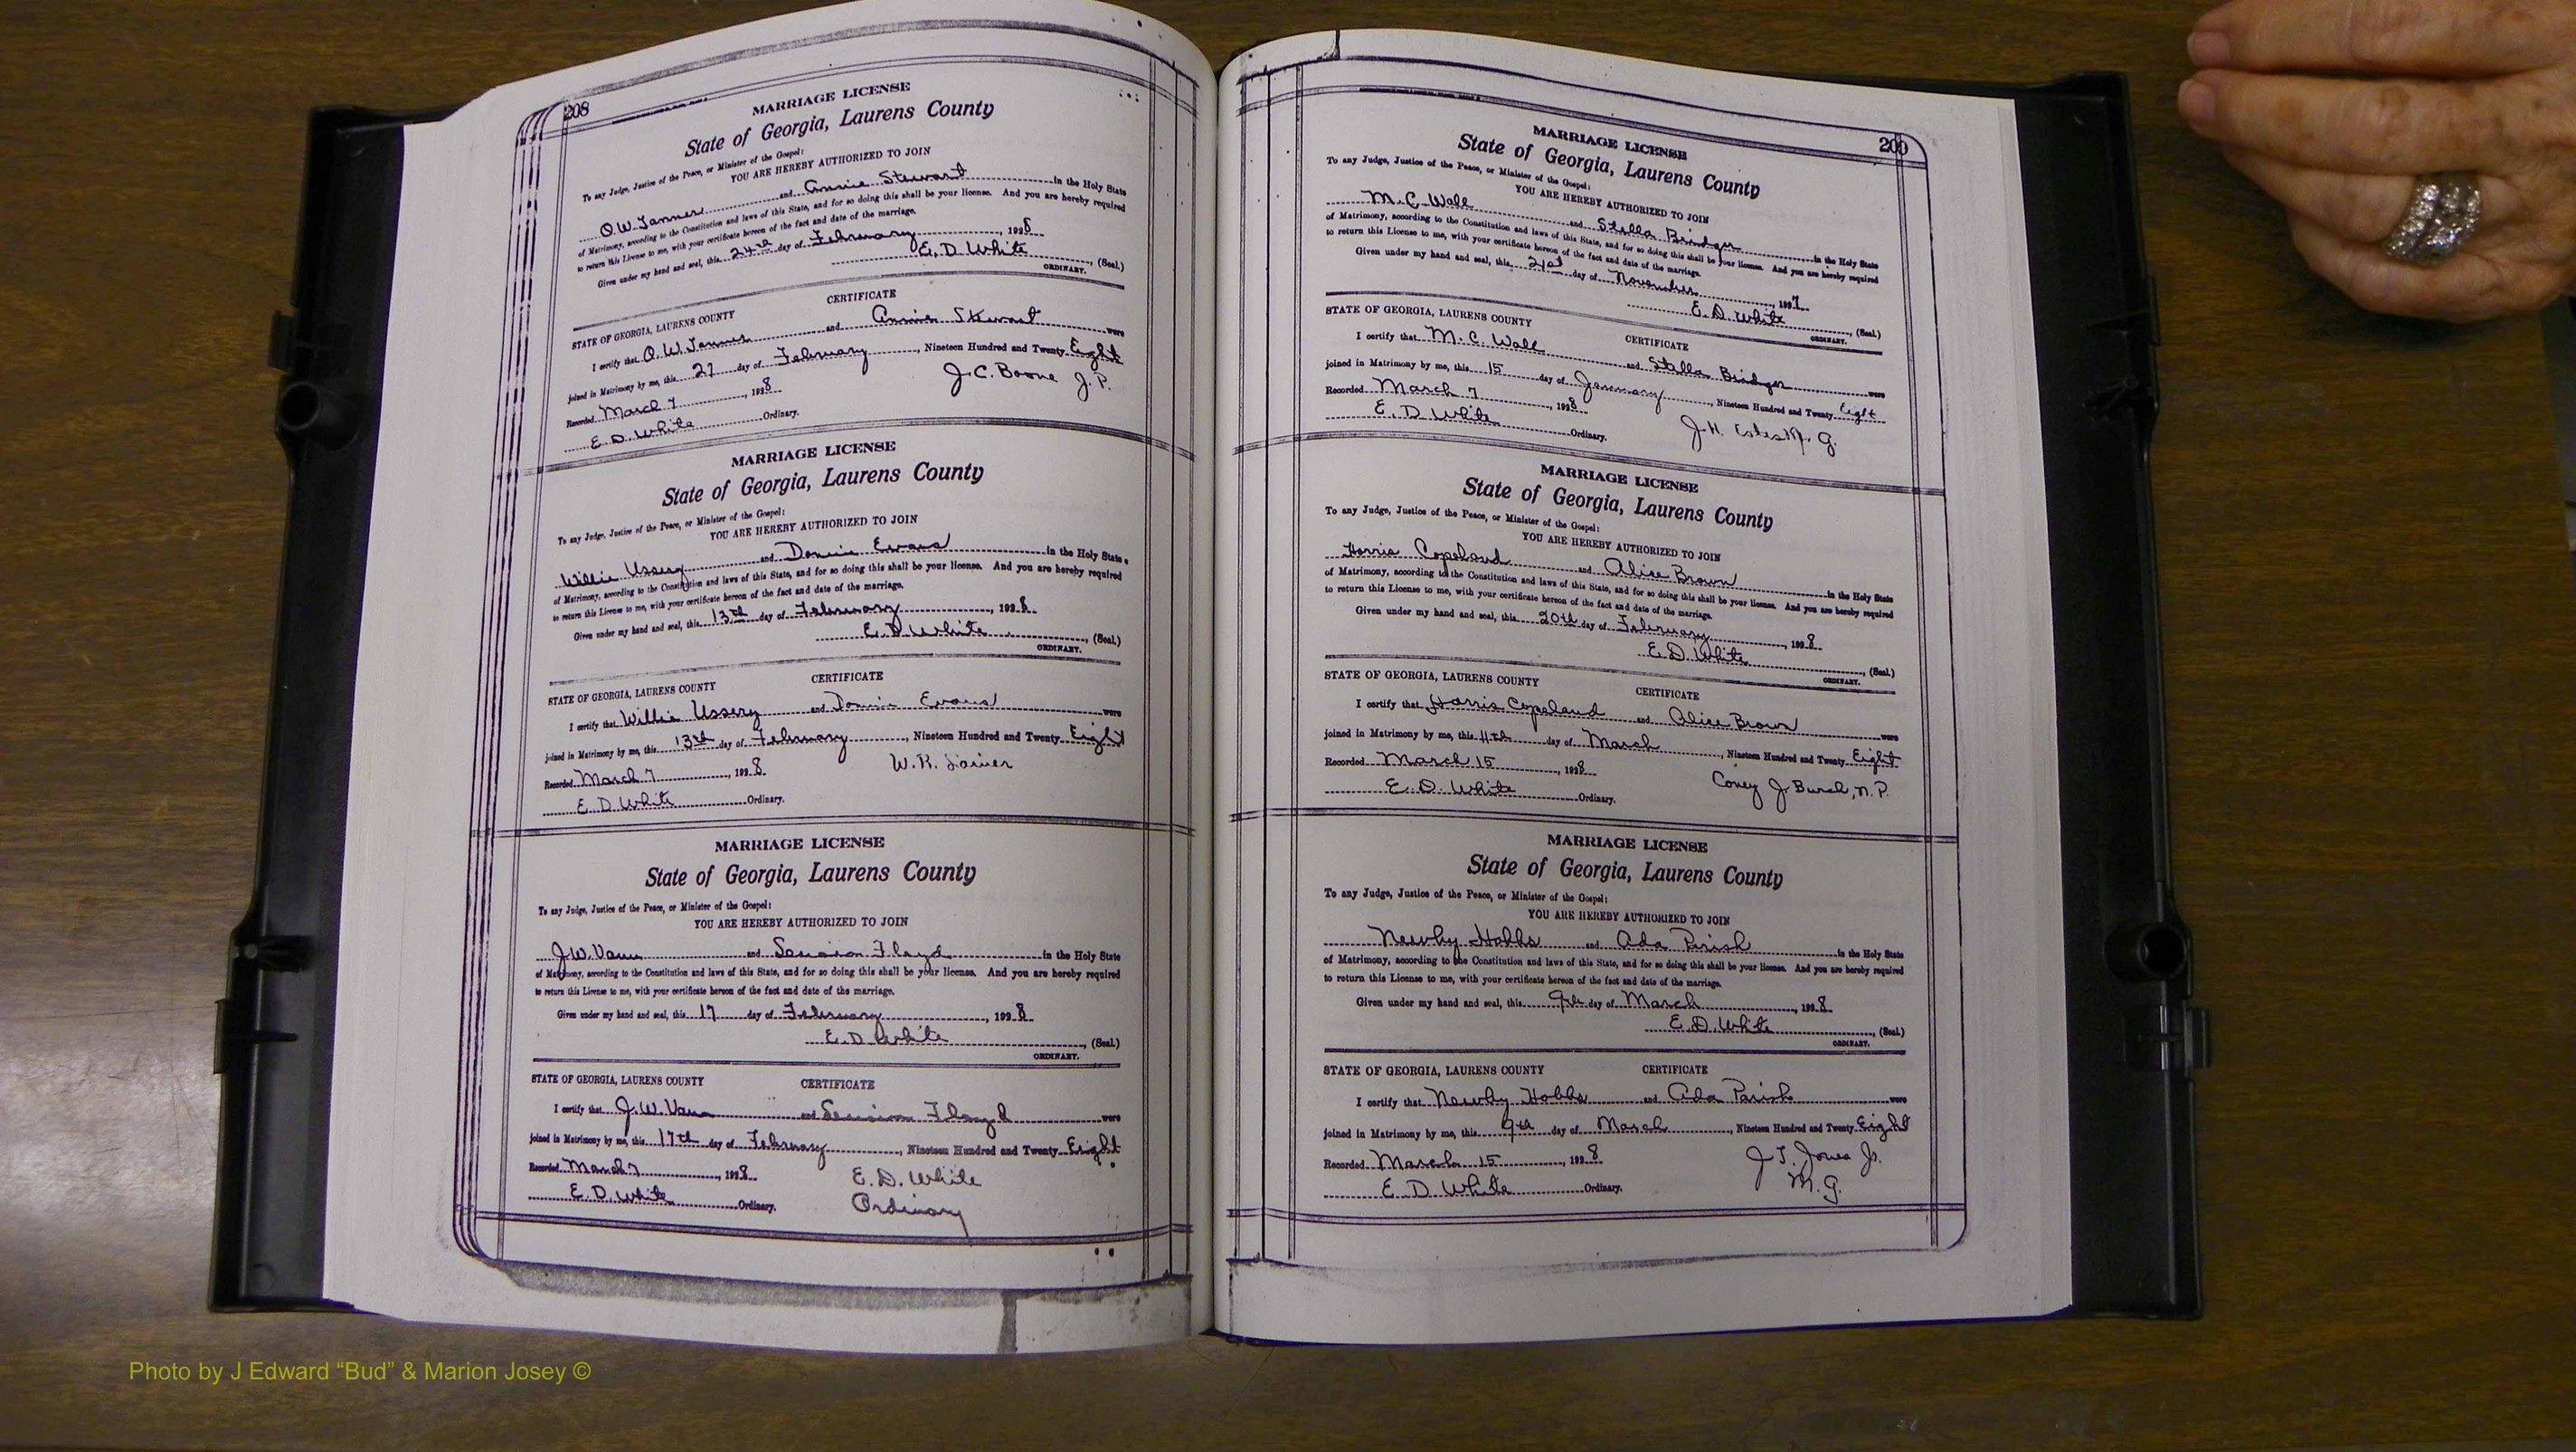 208
MARRIAGE LICENSE
State of Georgia, Laurens County
To any Judge, Justice of the Peace, or Minister of the Gospel:
YOU ARE HEREBY AUTHORIZED TO JOIN
O.W. Tanner and Annie Stewart in the Holy State
of Matrimony, according to the Constitution and laws of this State, and for so doing this shall be your license. And you are hereby required
to return this License to me, with your certificate hereon of the fact and date of the marriage.
Given under my hand and seal, this 24th day of February, 1928
E. D. White (Seal.)
ORDINARY.
CERTIFICATE
STATE OF GEORGIA, LAURENS COUNTY
I certify that O. W. Tanner and Annie Stewart were
joined in Matrimony by me, this 27 day of February, Nineteen Hundred and Twenty Eight
Recorded March 7, 1928 J. C. Boone J. P.
E. D. White Ordinary.
MARRIAGE LICENSE
State of Georgia, Laurens County
To any Judge, Justice of the Peace, or Minister of the Gospel:
YOU ARE HEREBY AUTHORIZED TO JOIN
Willie Ussery and Evans in the Holy State
of Matrimony, according to the Constitution and laws of this State, and for so doing this shall be your license. And you are hereby required
to return this License to me, with your certificate hereon of the fact and date of the marriage.
Given under my hand and seal, this 13th day of February, 1928
E. D. White (Seal.)
ORDINARY.
CERTIFICATE
STATE OF GEORGIA, LAURENS COUNTY
I certify that Willie Ussery and Evans were
joined in Matrimony by me, this 13th day of February, Nineteen Hundred and Twenty Eight
Recorded March 7, 1928 W. R.
E. D. White Ordinary.
MARRIAGE LICENSE
State of Georgia, Laurens County
To any Judge, Justice of the Peace, or Minister of the Gospel:
YOU ARE HEREBY AUTHORIZED TO JOIN
J. W. Vann and Floyd in the Holy State
of Matrimony, according to the Constitution and laws of this State, and for so doing this shall be your license. And you are hereby required
to return this License to me, with your certificate hereon of the fact and date of the marriage.
Given under my hand and seal, this 17 day of February, 1928
E. D. White (Seal.)
ORDINARY.
CERTIFICATE
STATE OF GEORGIA, LAURENS COUNTY
I certify that J. W. Vann and Floyd were
joined in Matrimony by me, this 17th day of February, Nineteen Hundred and Twenty Eight
Recorded March 7, 1928 E. D. White
E. D. White Ordinary. Ordinary
209
MARRIAGE LICENSE
State of Georgia, Laurens County
To any Judge, Justice of the Peace, or Minister of the Gospel:
YOU ARE HEREBY AUTHORIZED TO JOIN
M. C. Wall and Stella Bridger in the Holy State
of Matrimony, according to the Constitution and laws of this State, and for so doing this shall be your license. And you are hereby required
to return this License to me, with your certificate hereon of the fact and date of the marriage.
Given under my hand and seal, this 21st day of November, 1927
E. D. White (Seal.)
ORDINARY.
CERTIFICATE
STATE OF GEORGIA, LAURENS COUNTY
I certify that M. C. Wall and Stella Bridger were
joined in Matrimony by me, this 15 day of January, Nineteen Hundred and Twenty Eight
Recorded March 7, 1928 J. H. Estes M. G.
E. D. White Ordinary.
MARRIAGE LICENSE
State of Georgia, Laurens County
To any Judge, Justice of the Peace, or Minister of the Gospel:
YOU ARE HEREBY AUTHORIZED TO JOIN
Harris Copeland and Alice Brown in the Holy State
of Matrimony, according to the Constitution and laws of this State, and for so doing this shall be your license. And you are hereby required
to return this License to me, with your certificate hereon of the fact and date of the marriage.
Given under my hand and seal, this 20th day of February, 1928
E. D. White (Seal.)
ORDINARY.
CERTIFICATE
STATE OF GEORGIA, LAURENS COUNTY
I certify that Harris Copeland and Alice Brown were
joined in Matrimony by me, this 11th day of March, Nineteen Hundred and Twenty Eight
Recorded March 15, 1928 Coney J Burch, N. P.
E. D. White Ordinary.
MARRIAGE LICENSE
State of Georgia, Laurens County
To any Judge, Justice of the Peace, or Minister of the Gospel:
YOU ARE HEREBY AUTHORIZED TO JOIN
Newby Hobbs and Ada Parish in the Holy State
of Matrimony, according to the Constitution and laws of this State, and for so doing this shall be your license. And you are hereby required
to return this License to me, with your certificate hereon of the fact and date of the marriage.
Given under my hand and seal, this 9th day of March, 1928
E. D. White (Seal.)
ORDINARY.
CERTIFICATE
STATE OF GEORGIA, LAURENS COUNTY
I certify that Newby Hobbs and Ada Parish were
joined in Matrimony by me, this 9th day of March, Nineteen Hundred and Twenty Eight
Recorded March 15, 1928 J. T. Jones Jr.
E. D. White Ordinary. M. G.
Photo by J Edward “Bud” & Marion Josey ©